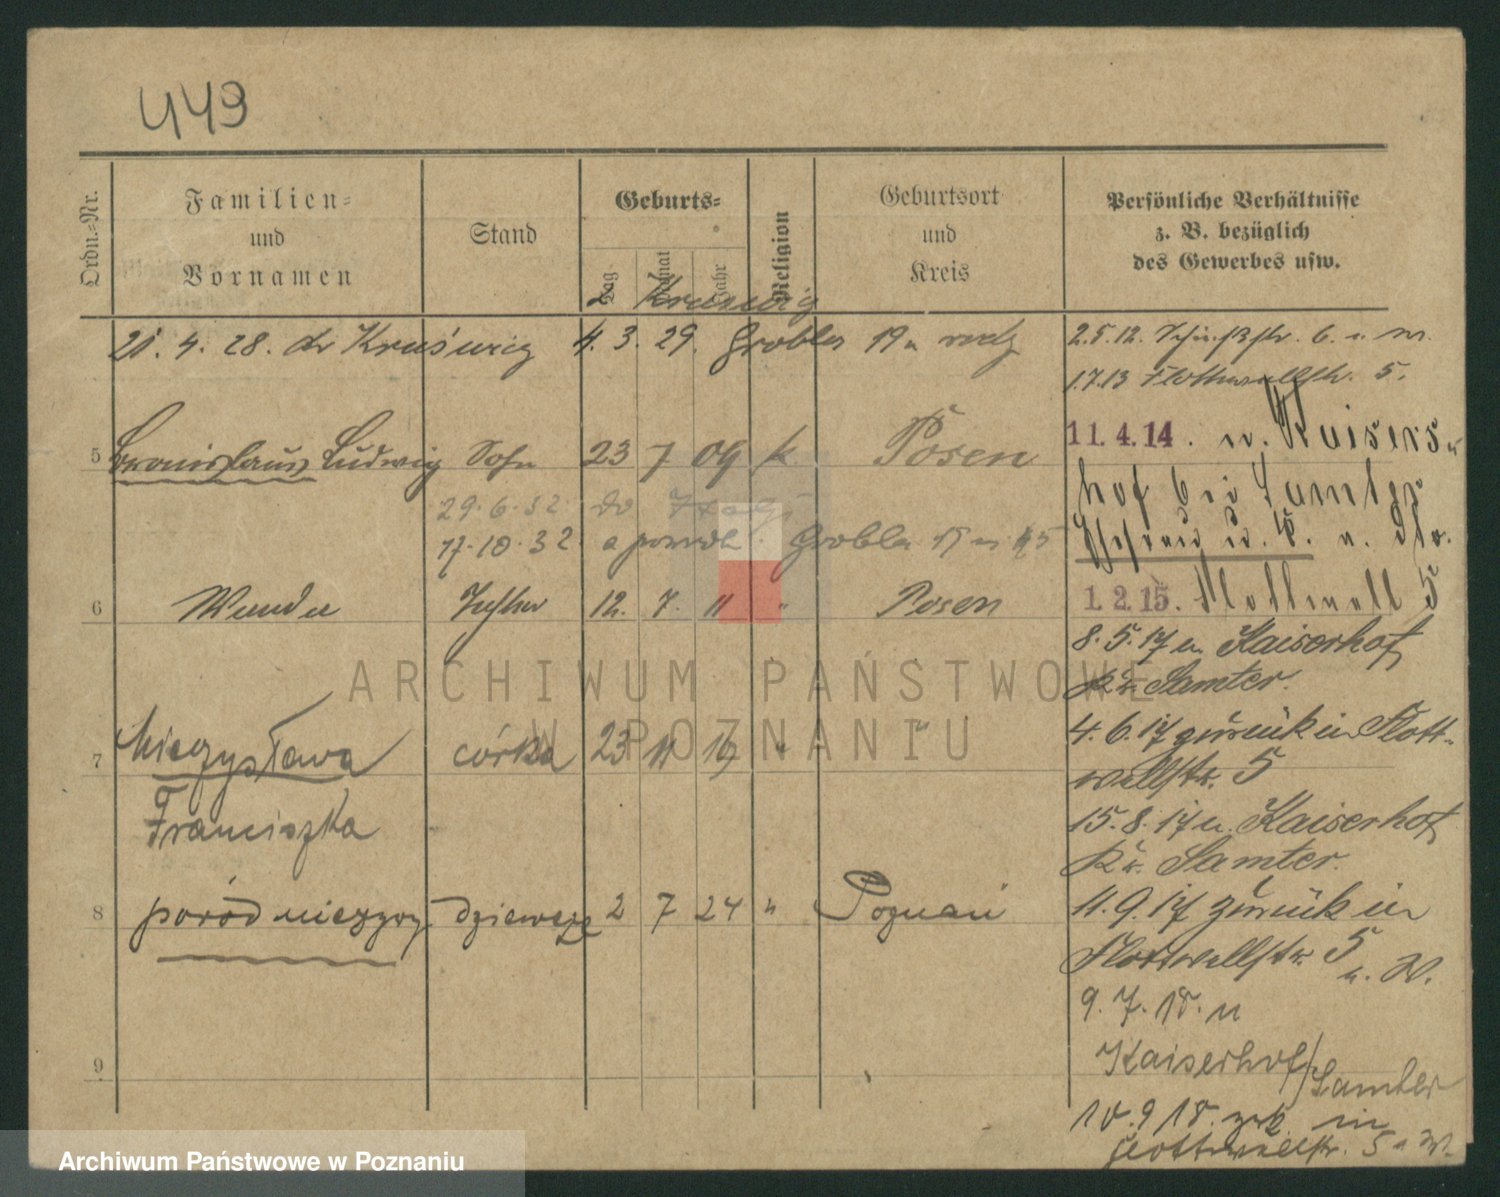 449
Ordn.-Nr.
Familien-
und
Vornamen
Stand
Geburts-
Tag
Monat
Jahr
Religion
Geburtsort
und
Kreis
Persönliche Verhältnisse
z. B. bezüglich
des Gewerbes usw.
21. 4. 28. do Kruświcy 4. 3. 29. Grobla 19
2.5.12. 6. u. W.
1.7.13 Flottwellstr. 5.
5 Bronislaus Ludwig Sohn 23 7 09 k Posen
11.4.14. n. Kaisers-
hof bei Samter
Ehefrau
29.6.32 do
17.10.32 a powr. Grobla 15
6 Wanda Tochter 12. 7. 11 " Posen
1.2.15. Flottwell 5
8.5.17 n. Kaiserhof
Kr. Samter.
7 Mieczysława córka 23 11 19 " "
4.6.17 zurück in Flott-
wellstr. 5
Franciszka
15.8.17 n. Kaiserhof
Kr. Samter.
8 poród nieżywy dziewczę 2 7 24 " Poznań
11.9.17 zurück in
Flottwellstr. 5
u. W.
9.7.18. n
Kaiserhof/Samter
9
10.9 18. zrk. in
Flottwellstr. 5 u W.
ARCHIWUM PAŃSTWOWE
W POZNANIU
Archiwum Państwowe w Poznaniu